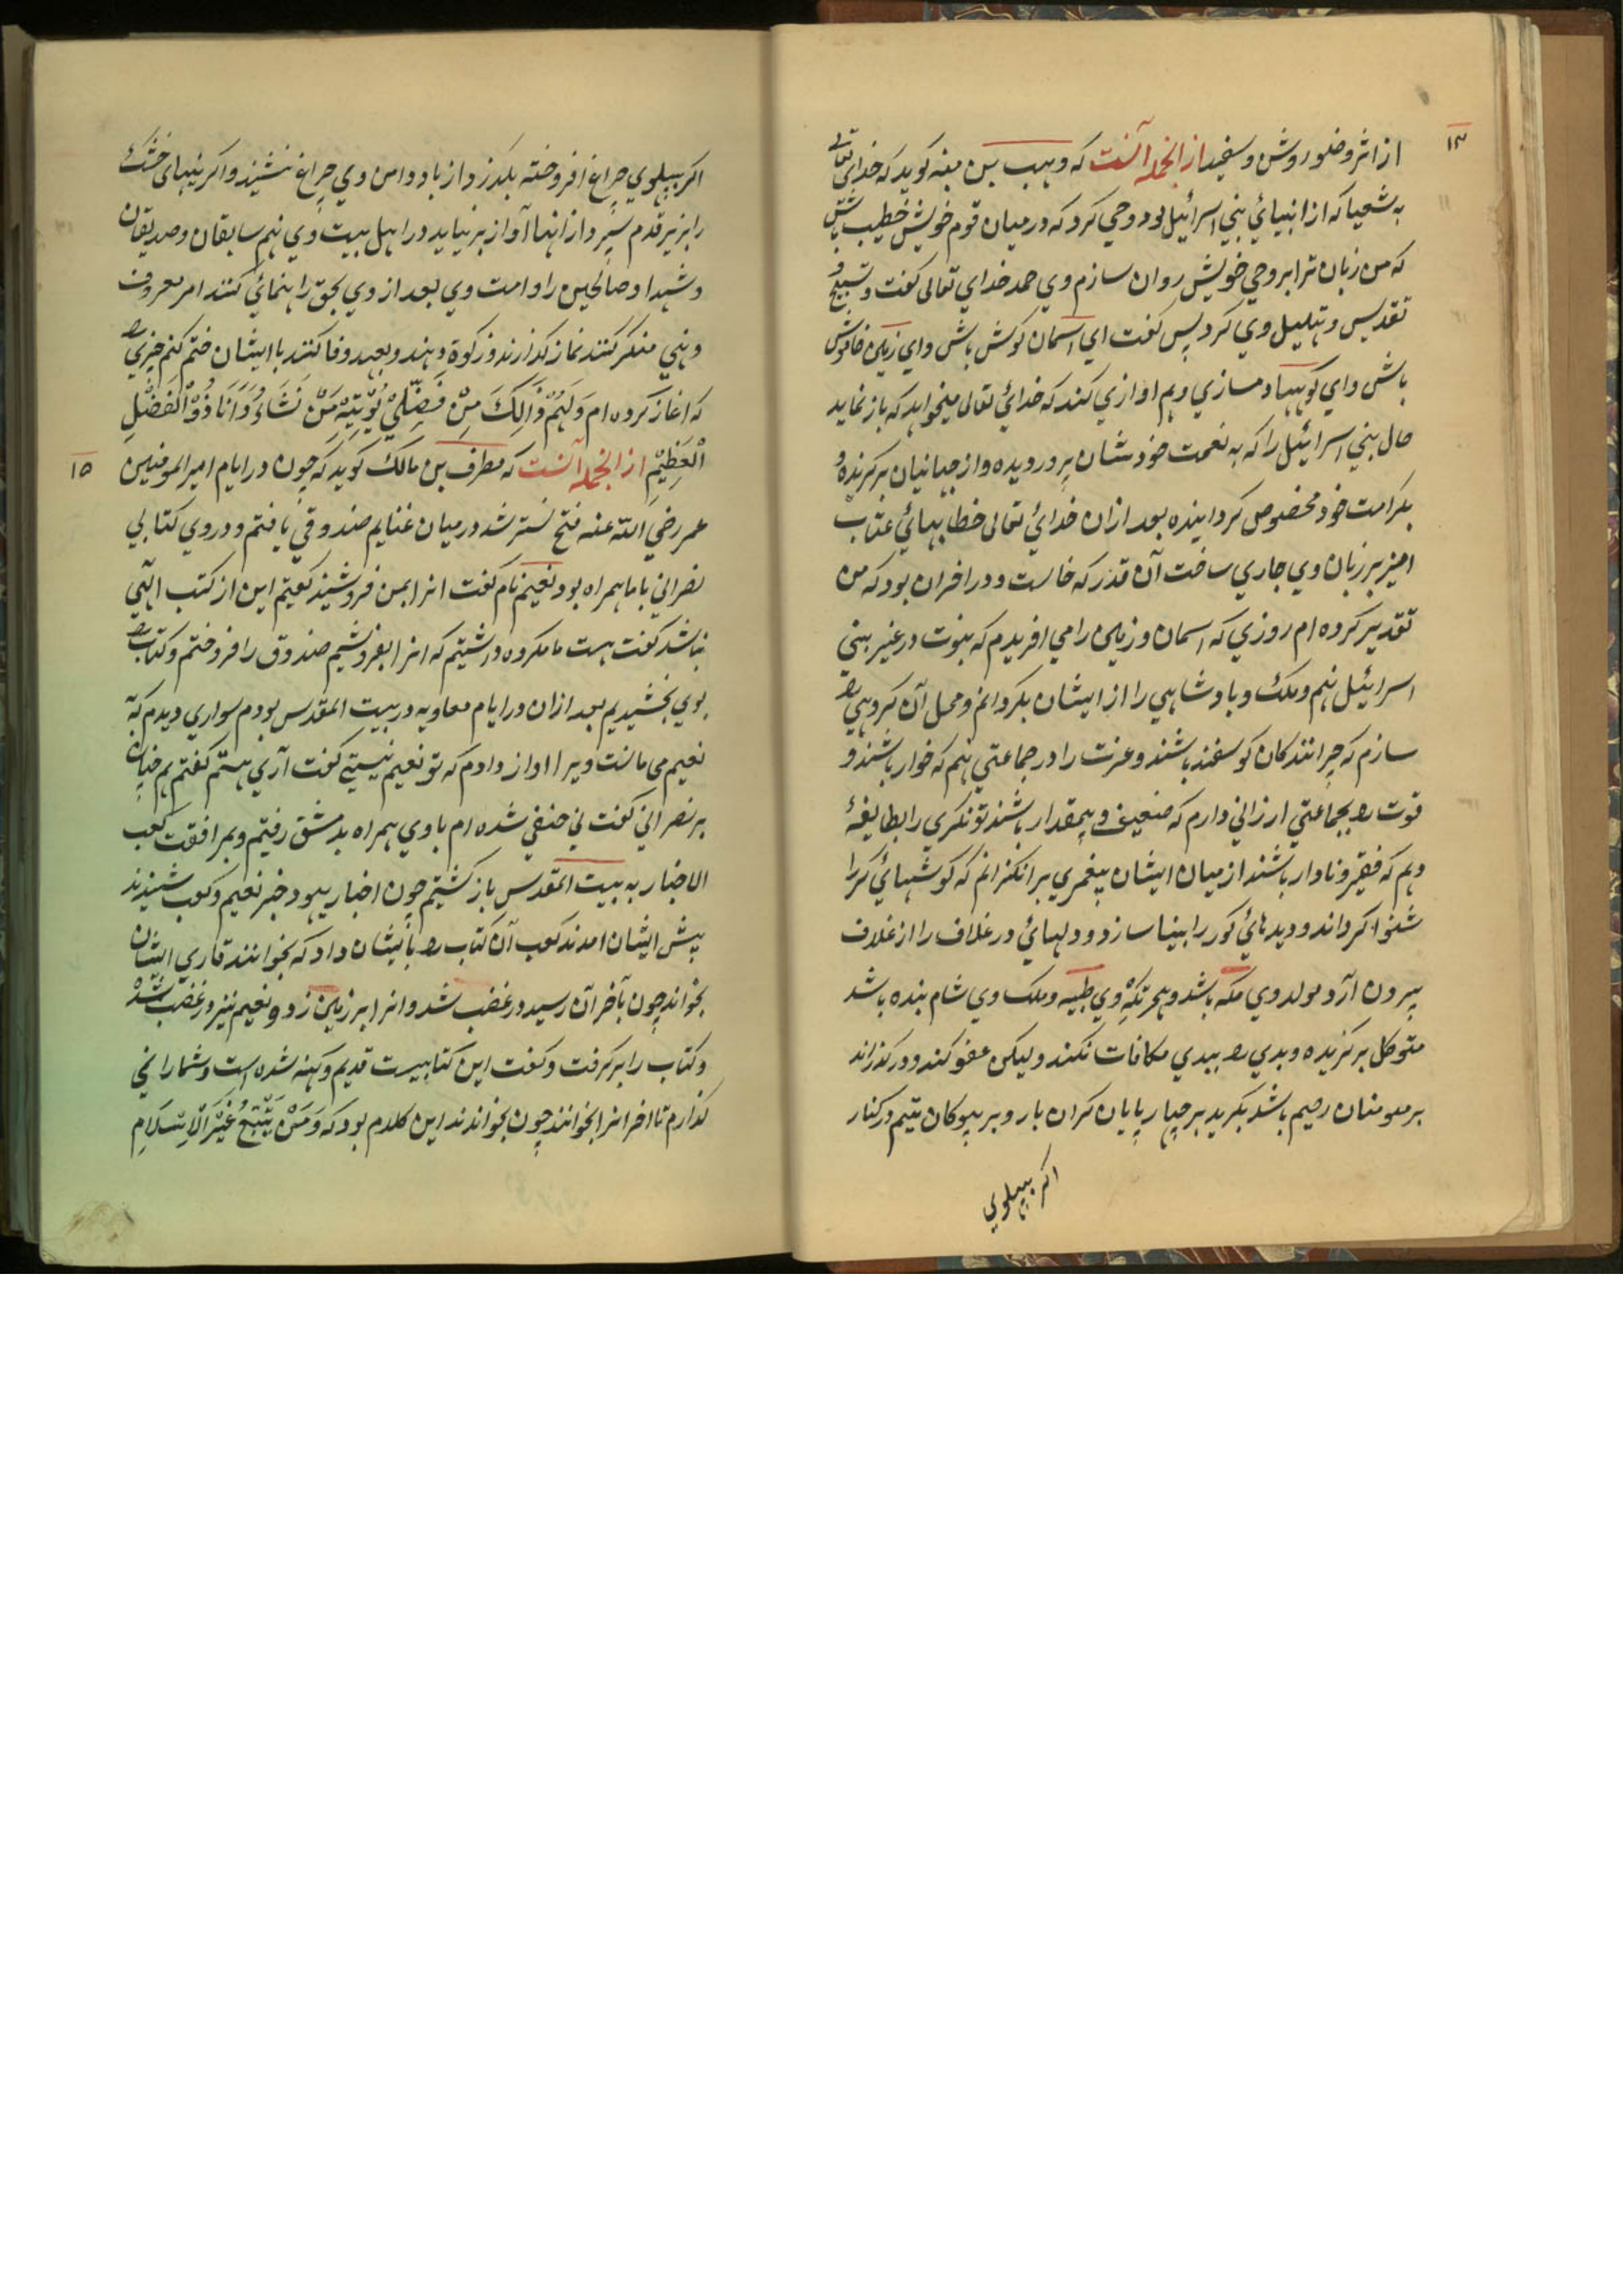 ۱۴
از اثر وضو روش و سفید از انجمله آنست که وهب بن منبه کوید که خدای تعالی
به شعیا که از انبیائي بني اسرائیل بود وحي کرد که در میان قوم خویش خطیب باش
که من زبان ترا بر وحي خویش روان سازم وي حمد خداي تعالی کفت و تسبیح و
تقدیس و تهلیل وي کرد پس کفت اي آسمان کوش باش و اي زمین خاموش
باش و اي کوهها دمسازي و هم اوازي کنند که خدائي تعالی میخواهد که باز نماید
حال بني اسرائیل را که به نعمت خود شان پروریده و از جهانیان برکزیده و
بکرامت خود مخصوص کردانیده بعد ازان خدائي تعالی خطابهائي عتاب
امیز بر زبان وي جاري ساخت آن قدر که خاست و در اخر ان بود که من
تقدیر کرده ام روزي که اسمان و زمین را مي افریدم که نبوت در غیر بني
اسرائیل نهم و ملک و بادشاهي را از ایشان بکردانم و محل آن کروهي را
سازم که چرانندکان کوسفند باشند و عزت را در جماعتي نهم که خوار باشند و
قوت را بجماعتي ارزاني دارم که ضعیف و بیمقدار باشند تونکري را بطایفهٔ
دهم که فقیر و نادار باشند از میان ایشان پیغمبري برانکیزانم که کوشهائي کر را
شنوا کرداند و دیدهائي کور را بینا سازد و دلهائي در غلاف را از غلاف
بیرون آرد مولد وي مکه باشد و هجرتکه وي طیبه و ملک وي شام بنده باشد
متوکل برکزیده و بدي را ببدي مکافات نکند و لیکن عفو کند و درکذراند
بر مومنان رحیم باشد بکرید بر چهار پایان کران بار و بر بیوکان یتیم در کنار
اکر بپهلوي
اکر بپهلوي چراغ افروخته بکذرد از باد دامن وي چراغ ننشیند و اکر نیهاي خشک
را بزیر قدم سپرد از انها آواز بر نیاید در اهل بیت وي نهم سابقان و صدیقان
و شهدا و صالحین را و امت وي بعد از وي بحق راهنمائي کنند امر معروف
و نهي منکر کنند نماز کذارند و زکوة دهند و بعهد وفا کنند با ایشان ختم کنم خیري را
که اغاز کرده ام وَلَهُمْ وَذَالِكَ مِنْ فَضْلِيْ یُؤْتِیْهِ مَنْ نَشَاءُ وَاَنَا ذُوْ الْفَضْلِ
الْعَظِیْمِ از انجمله آنست که مطرف بن مالک کوید که چون در ایام امیر المومنین
۱۵
عمر رضي الله عنه فتح تستر شد در میان غنایم صندوقي یافتم و در وي کتابي
نصراني با ما همراه بود نعیم نام کفت انرا بمن فروشید کفتیم این از کتب الهي
نباشد کفت هست ما مکروه داشتیم که انرا بفروشیم صندوق را فروختم و کتاب را
بوي بخشیدیم بعد ازان در ایام معاویه در بیت المقدس بودم سواري دیدم که به
نعیم مي مانست ویرا اواز دادم که تو نعیم نیستي کفت آري هستم کفتم هم چنان
بر نصراني کفت ني حنفي شده ام با وي همراه بدمشق رفتیم و بمرافقت کعب
الاخبار به بیت المقدس باز کشتیم چون اخبار یهود خبر نعیم و کعب شنیدند
پیش ایشان امدند کعب آن کتاب را بایشان داد که بخوانند قاري ایشان
بخواند چون بآخر آن رسید در غضب شد و انرا بر زمین زد و نعیم نیز در غضب شد
و کتاب را بر کرفت و کفت این کتابیست قدیم و کهنه شده است و شما را نمي
کذارم تا اخر انرا بخوانند چون بخواندند این کلام بود که وَمَنْ یَبْتَغِ غَیْرَ الْاِسْلَامِ